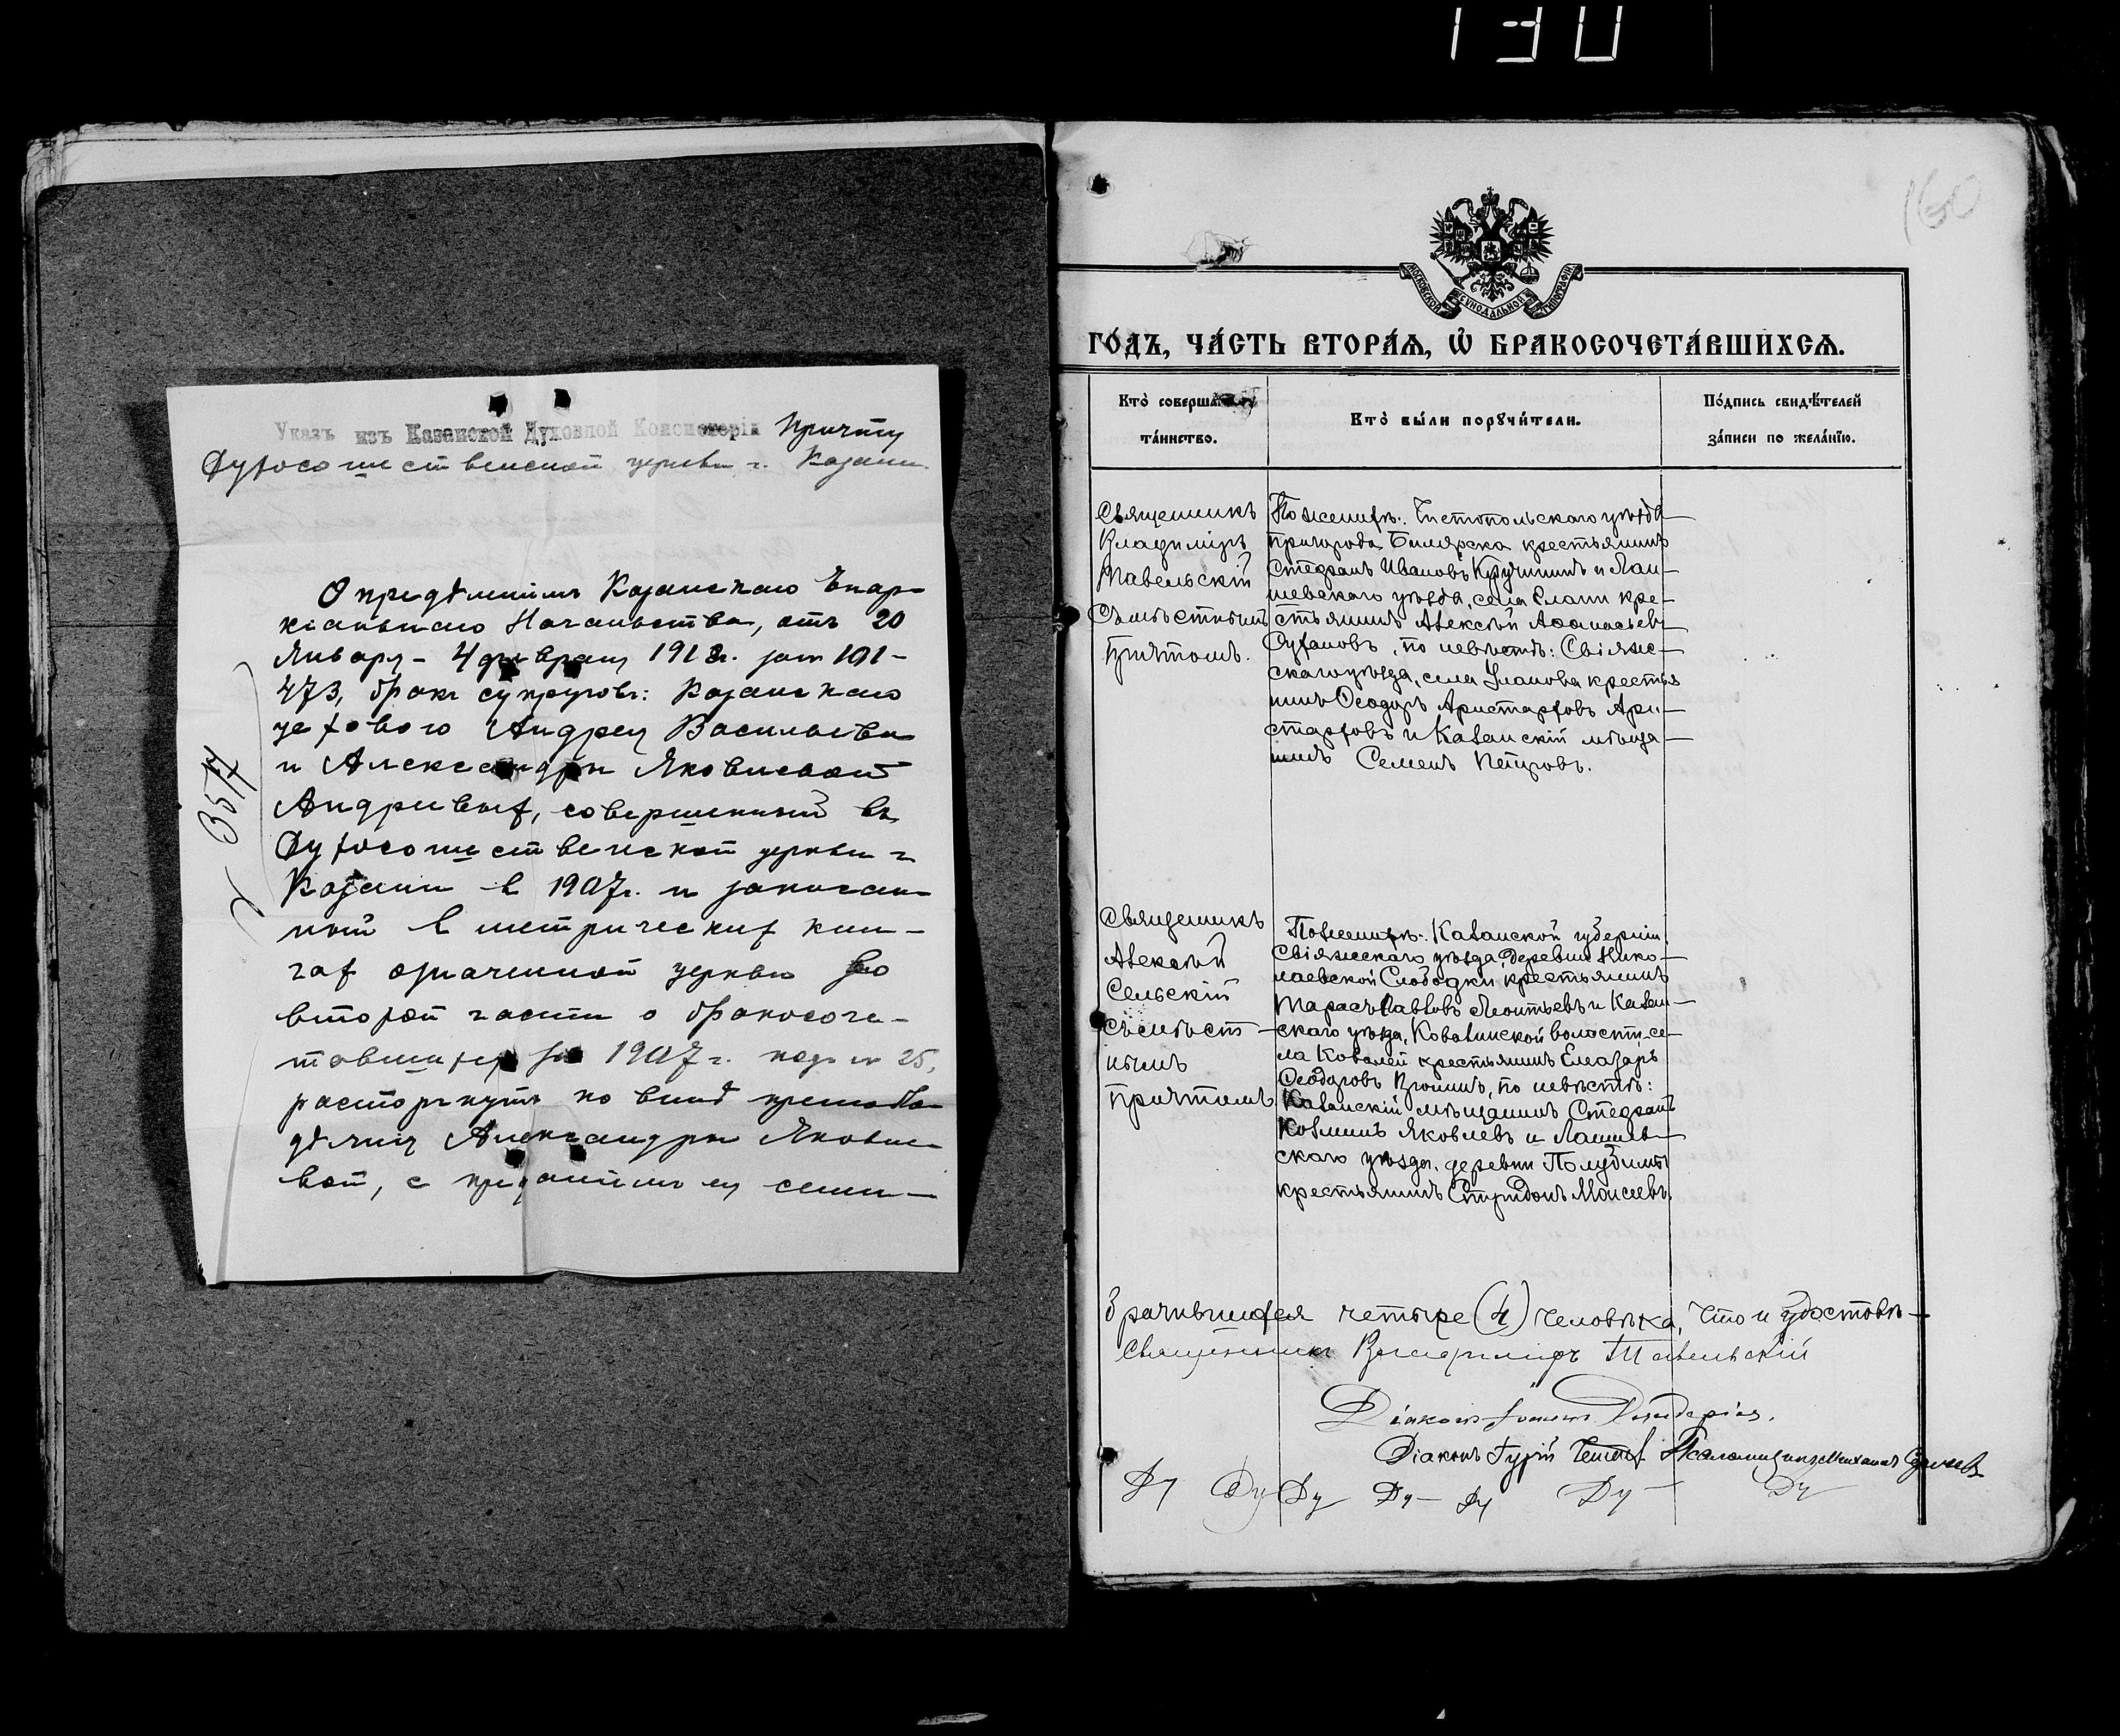 130
Указъ изъ Казанской Духовной Консисторіи Причту
Духосошественской церкви г. Казани
Опредѣленіемъ Казанскаго Епар-
хіальнаго Начальства, отъ 20
Января - 4 февраля 1912г. за № 191-
473, бракъ супруговъ: Казанскаго
цехового Андрея Васильева
и Александры Яковлевой
Андреевыхъ, совершенный въ
Духосошественской церкви г.
Казани въ 1907г. и записан-
ный въ метрическихъ кни-
гахъ означенной церкви во
второй части о бракосоче-
тавшихся за 1907г. подъ № 25,
расторгнутъ по винѣ прелюбо-
дѣянія Александры Яковле-
вой, съ преданіемъ ея семи-
№ 3577
160
МОСКОВСКОЙ СѴНОДАЛЬНОЙ ТИПОГРАФІИ
ГО́ДЪ, ЧА́СТЬ ВТОРА́Ѧ, Ѡ҆ БРАКОСОЧЕТА́ВШИХСѦ.
Кто̀ соверша́лъ
та́инство.
Кто̀ бы́ли порꙋчи́тели.
По́дпись свидѣ́телей
за́писи по жела́нїю.
Священникъ
Владиміръ
Тавельскій
съ мѣстнымъ
причтомъ.
По женихѣ: Чистопольскаго уѣзда
пригорода Билярска крестьянинъ
Стефанъ Ивановъ Кручининъ и Лаи-
шевскаго уѣзда, села Елани кре-
стьянинъ Алексѣй Аѳанасьевъ
Сухановъ, по невѣстѣ: Свіяж-
скаго уѣзда, села Уланова крестья
нинъ Ѳеодоръ Аристарховъ Ари-
старховъ и Казанскій мѣща-
нинъ Семенъ Петровъ.
Священникъ
Алексѣй
Сельскій
съ мѣст-
нымъ
причтомъ
По женихѣ: Казанской губерніи
Свіяжскаго уѣзда, деревни Нико-
лаевской Слободки крестьянинъ
Тарасъ Павловъ Леонтьевъ и Казан-
скаго уѣзда, Ковалинской волости, се-
ла Ковалей крестьянинъ Елеазаръ
Ѳеодоровъ по невѣстѣ:
Казанскій мѣщанинъ Стефанъ
Козминъ Яковлевъ и Лаишев-
скаго уѣзда, деревни
крестьянинъ Спиридонъ Моисеевъ.
Брачившихся четыре (4) человѣка, что и удостовѣ-
Священникъ Владиміръ Тавельскій
Діаконъ Іоаннъ
Діаконъ Гурій Псаломщикъ Михаилъ
Ду Ду Ду Ду Ду Ду Ду